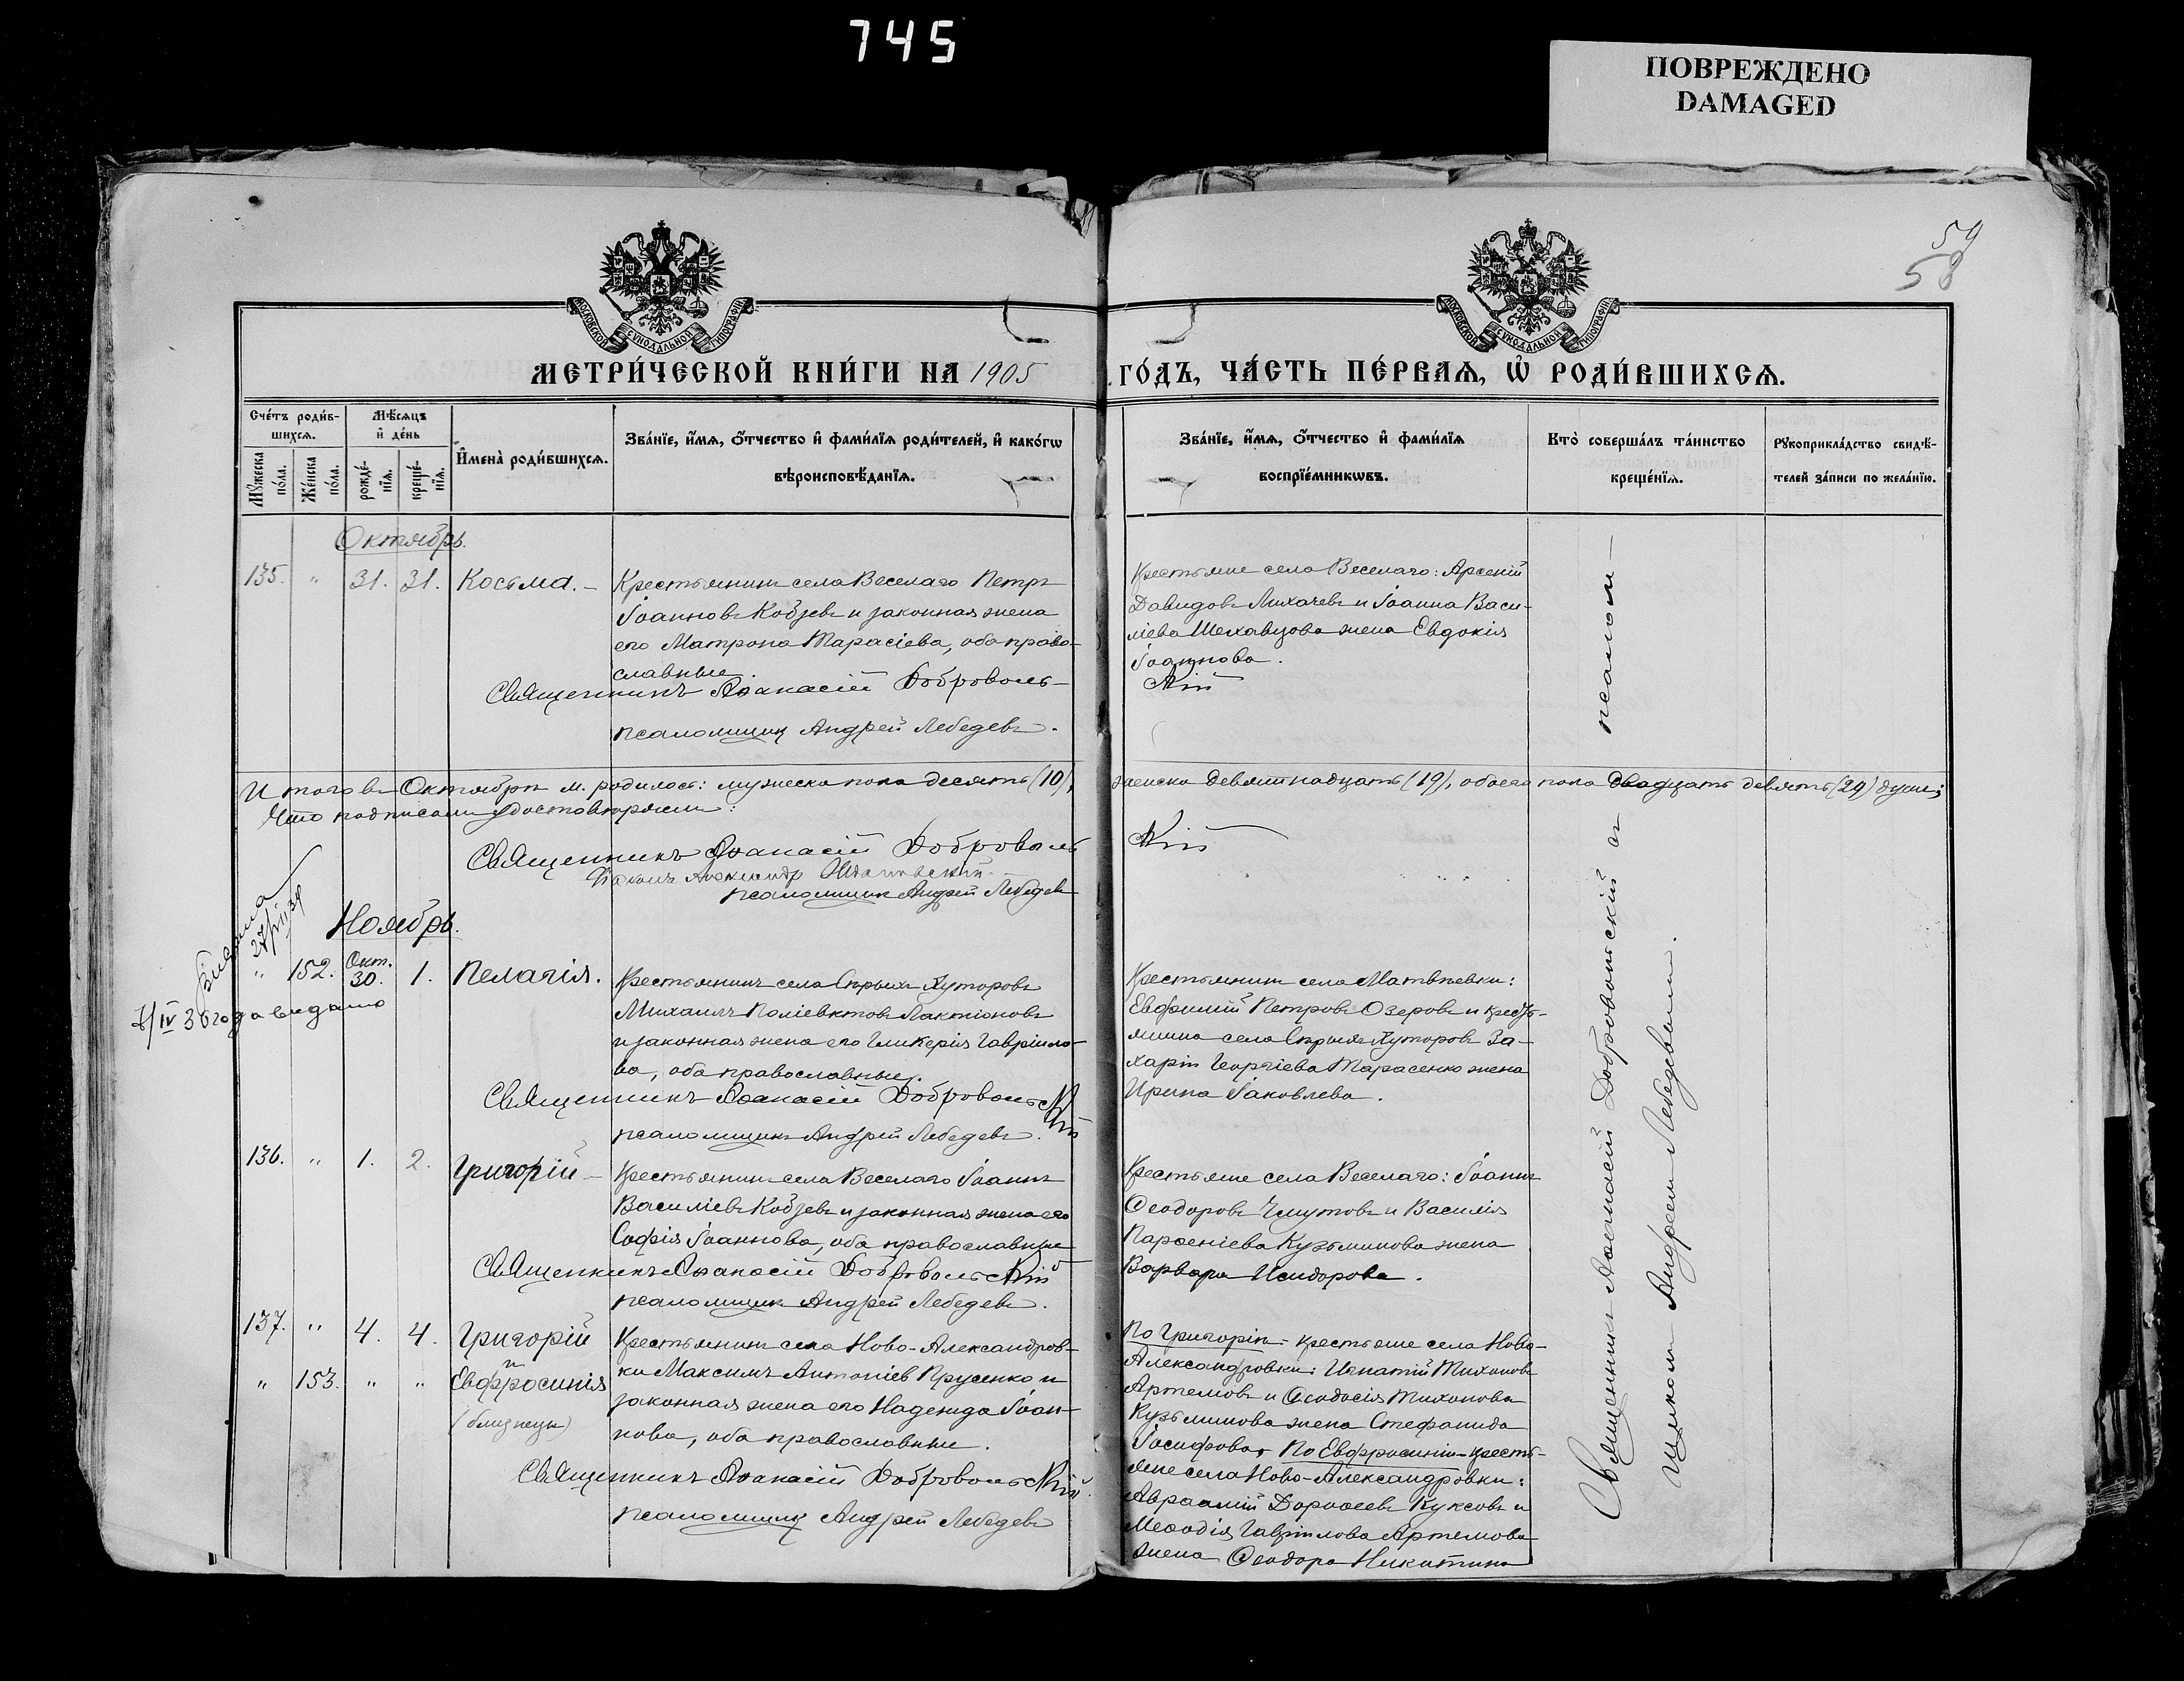 745
ПОВРЕЖДЕНО
DAMAGED
59
58
МОСКОВСКОЙ СѴНОДАЛЬНОЙ ТИПОГРАФІИ
МОСКОВСКОЙ СѴНОДАЛЬНОЙ ТИПОГРАФІИ
МЕТРИ́ЧЕСКОЙ КНИ́ГИ НА 1905
ГО́ДЪ, ЧА́СТЬ ПЕ́РВАѦ, Ѽ РОДИ́ВШИХСѦ.
Сче́тъ роди́в-
шихсѧ.
Мѣ́сѧцъ
и҆ де́нь
Мꙋ́жеска
по́ла.
Же́нска
по́ла.
рожде́-
нїѧ.
креще́-
нїѧ.
И҆мена̀ роди́вшихсѧ.
Зва́нїе, и҆́мѧ, ѻ҆́тчество и҆ фами́лїѧ роди́телей, и҆ како́гѡ
вѣроисповѣ́данїѧ.
Зва́нїе, и҆́мѧ, ѻ҆́тчество и҆ фами́лїѧ
воспрїе́мникѡвъ.
Кто̀ соверша́лъ та́инство
креще́нїѧ.
Рꙋкоприкла́дство свидѣ́-
телей за́писи по жела́нїю.
Октябрь.
135. " 31. 31. Косьма. –
Крестьянинъ села Веселаго Петръ
Іоанновъ Кобзевъ и законная жена
его Матрона Тарасіева, оба право-
славные.
Священникъ Аѳанасій Доброволь-
псаломщикъ Андрей Лебедевъ.
Крестьяне села Веселаго: Арсеній
Давидовъ Лихачевъ и Іоанна Васи-
ліева Шехавцова жена Евдокія
Іоаннова.
скій
Итого въ Октябрѣ м. родилось: мужеска пола десять (10),
женска девятнадцать (19), обоего пола двадцать девять (29) душъ;
Что подписами удостовѣряемъ:
Священникъ Аѳанасій Доброволь
скій
Діаконъ Александр
псаломщикъ Андрей Лебедевъ
Ноябрь.
" 152. Окт. 30. 1. Пелагія.
IV 36 года видано
Крестьянинъ села Старыхъ Хуторовъ
Михаилъ Поліевктовъ Лактіоновъ
и законная жена его Гликерія Гавріило-
ва, оба православные.
Священникъ Аѳанасій Добровольскій
псаломщикъ Андрей Лебедевъ.
Крестьянинъ села Матвѣевки:
Евфимій Петровъ Озеровъ и кресть-
янина села Старыхъ Хуторовъ За-
харія Георгіева Тарасенко жена
Ирина Іаковлева.
136. " 1. 2. Григорій –
Крестьянинъ села Веселаго Іоаннъ
Василіевъ Кобзевъ и законная жена его
Софія Іоаннова, оба православные
Священникъ Аѳанасій Добровольскій
псаломщикъ Андрей Лебедевъ.
Крестьяне села Веселаго: Іоаннъ
Ѳеодоровъ Чмутовъ и Василія
Парѳеніева Кузьминова жена
Варвара Исидорова.
137. " 4. 4. Григорій
и
" 153. " " Евфросинія
(близнецы)
Крестьянинъ села Ново-Александров-
ки Максимъ Антоніевъ Прусенко и
законная жена его Надежда Іоан-
нова, оба православные.
Священникъ Аѳанасій Добровольскій.
псаломщикъ Андрей Лебедевъ
По Григоріи – крестьяне села Ново-
Александровки: Игнатій Тихоновъ
Артемовъ и Ѳеодосія Тихонова
Кузьминова жена Стефанида
Іосифова. По Евфросиніи – кресть-
яне села Ново-Александровки:
Авраамій Дороѳеевъ Куксовъ и
Меѳодія Гавріилова Артемова
жена Ѳеодора Никитина
Священникъ Аѳанасій Добровольскій съ псалом –
щикомъ Андреемъ Лебедевымъ.